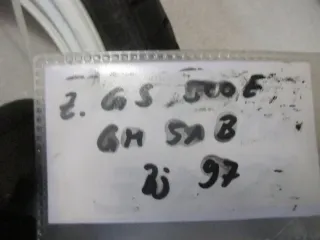 z. GS 500 E
GM 51 B
Bj 97